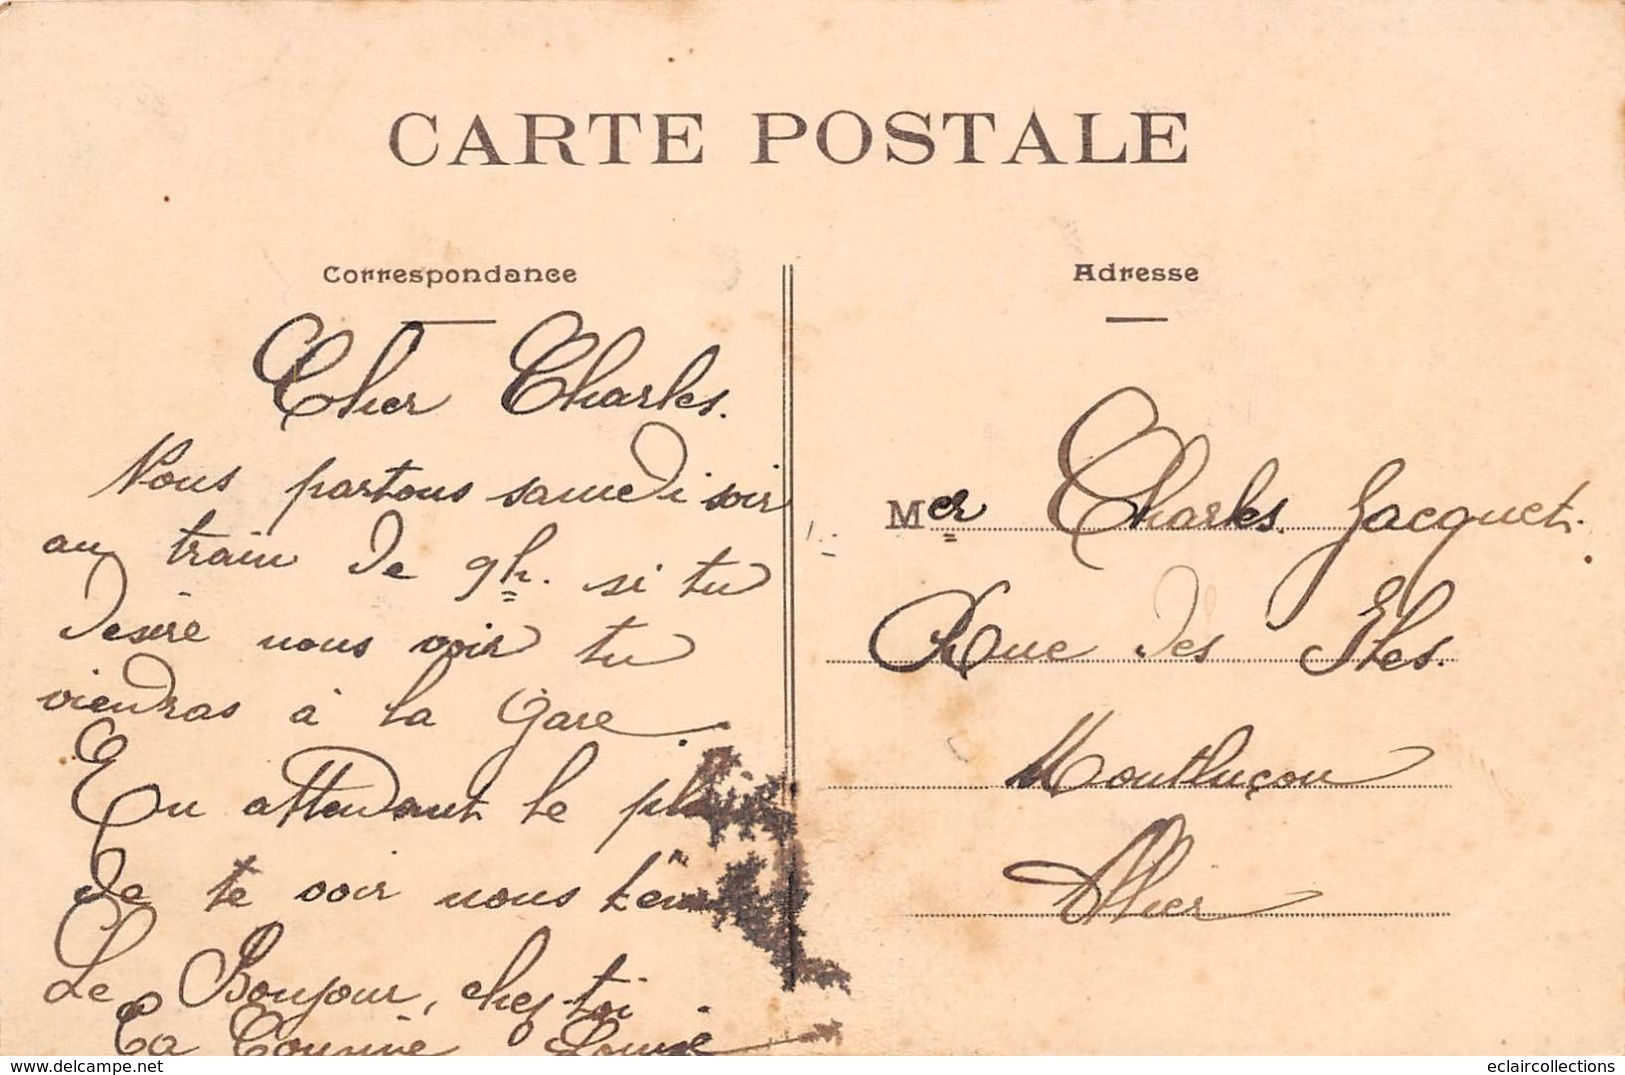 CARTE POSTALE
Correspondance
Cher Charles.
Nous partons samedi soir
au train de 9h. si tu
désire nous voir tu
viendras à la Gare.
En attendant le
de te voir nous
Le Bonjour, chez toi.
Ta Cousine Louise
Adresse
Mer Charles Jacquet.
Rue des Iles.
Montluçon
Allier
eclaircollections